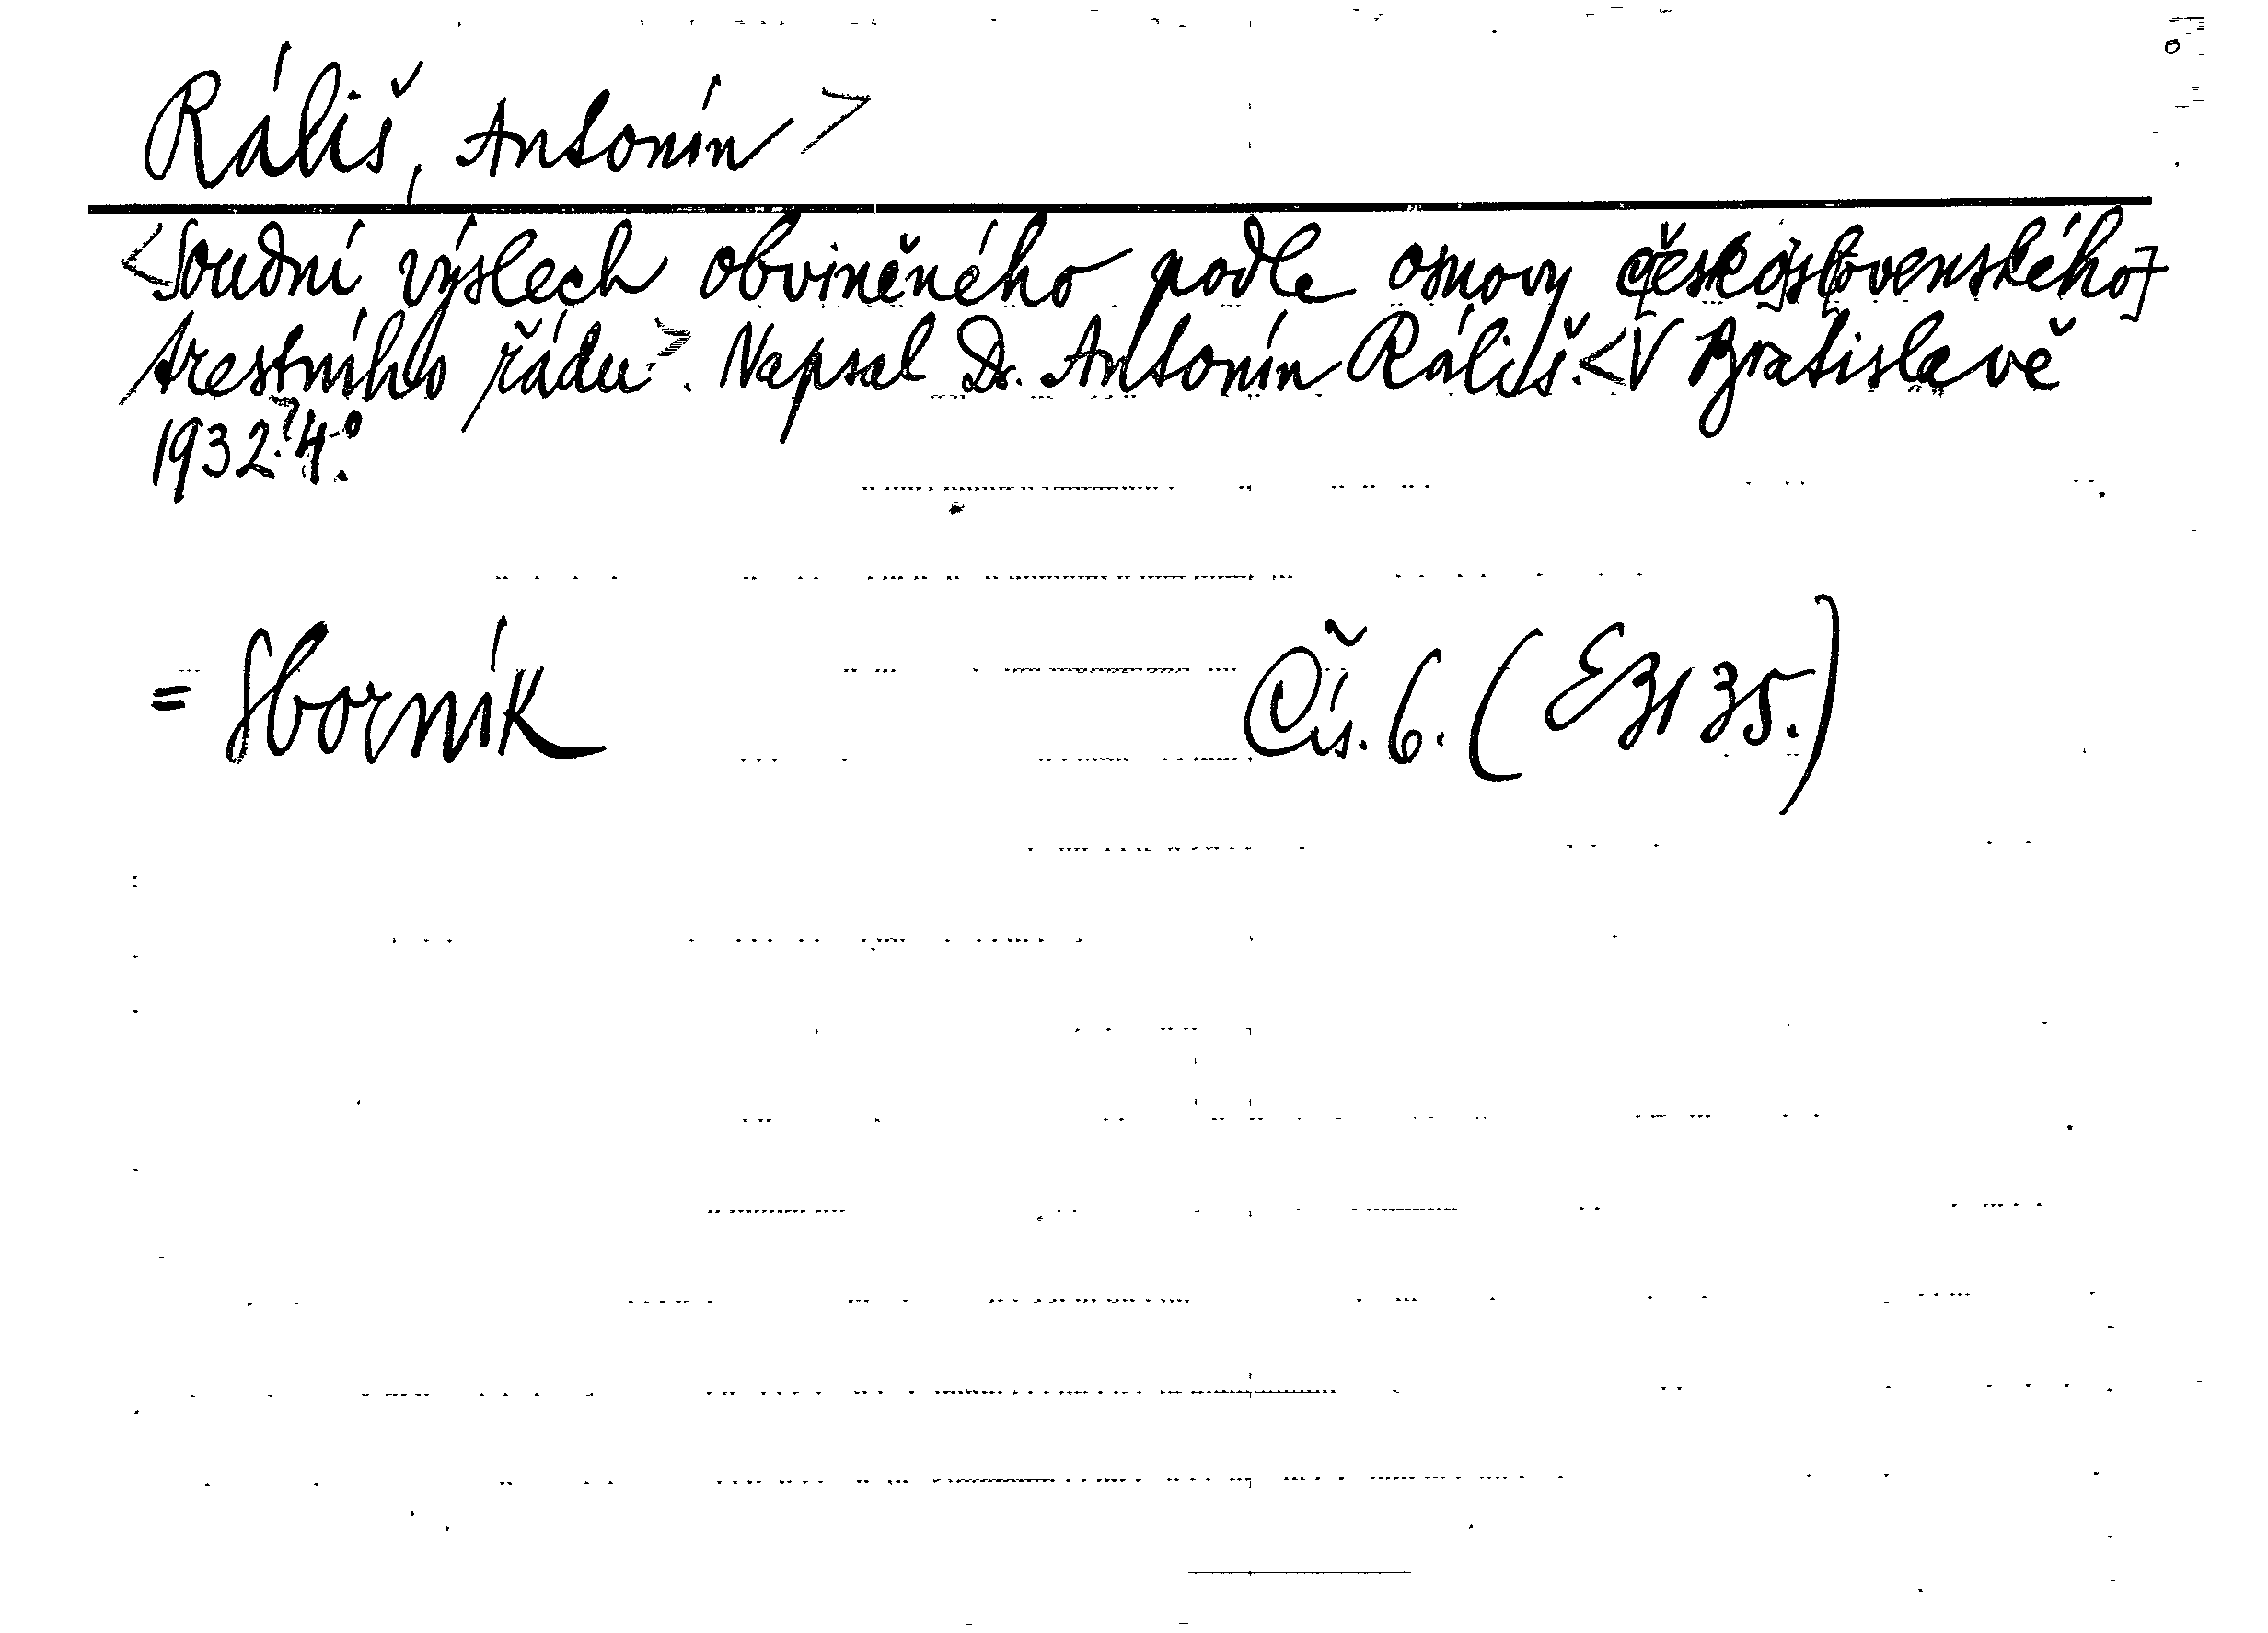 Ráliš, Antonín >
<Soudní výslech obviněného podle osnovy [česko]s[lovenského]
trestního řádu>. Napsal Dr. Antonín Ráliš. <V Bratislavě
1932.> 4.°
= Sborník Čís. 6. (